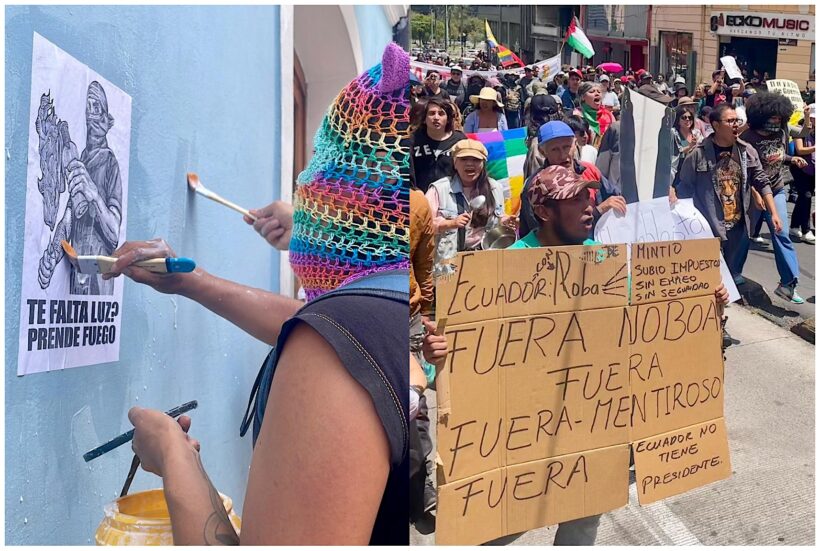 TE FALTA LUZ?
PRENDE FUEGO
ECKO MUSIC
MARCANDO TU RITMO
ECUADOR:
Roba
MINTIO
SUBIO IMPUESTOS
SIN EMPLEO
SIN SEGURIDAD
FUERA NOBOA
FUERA
FUERA-MENTIROSO
FUERA
ECUADOR NO
TIENE
PRESIDENTE.